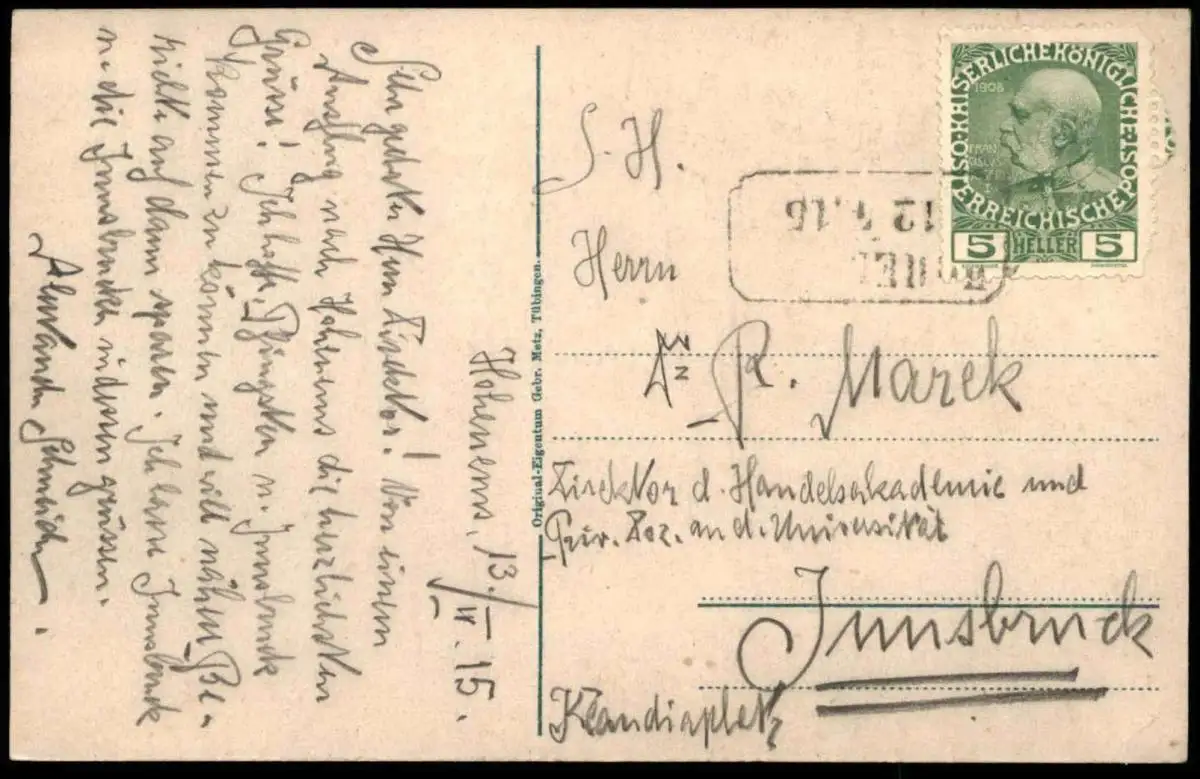 Hohenems, 13./IV. 15.
Sehr geehrter Herr Direktor! Von einem
Ausflug nach Hohenems die herzlichsten
Grüsse! Ich hoffe, Pfingsten n. Innsbruck
kommen zu können und will nähere Be-
richte auf dann sparen. Ich lasse Innsbruck
u. die Innsbrucker indessen grüssen.
S. H.
Herrn
Dr. R. Marek
Direktor d. Handelsakademie und
Priv. Doz. an d. Universität
Innsbruck
Klaudiaplatz
Original-Eigentum Gebr. Metz, Tübingen.
KAISERLICHEKÖNIGLICHE ÖSTERREICHISCHE POST
1908
FRAN
5 HELLER 5
12 15